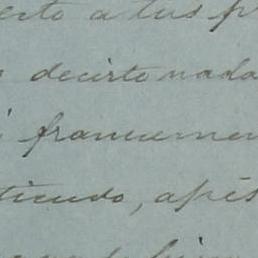 erto a tus p
decirte nada
francamen
tiendo, apés